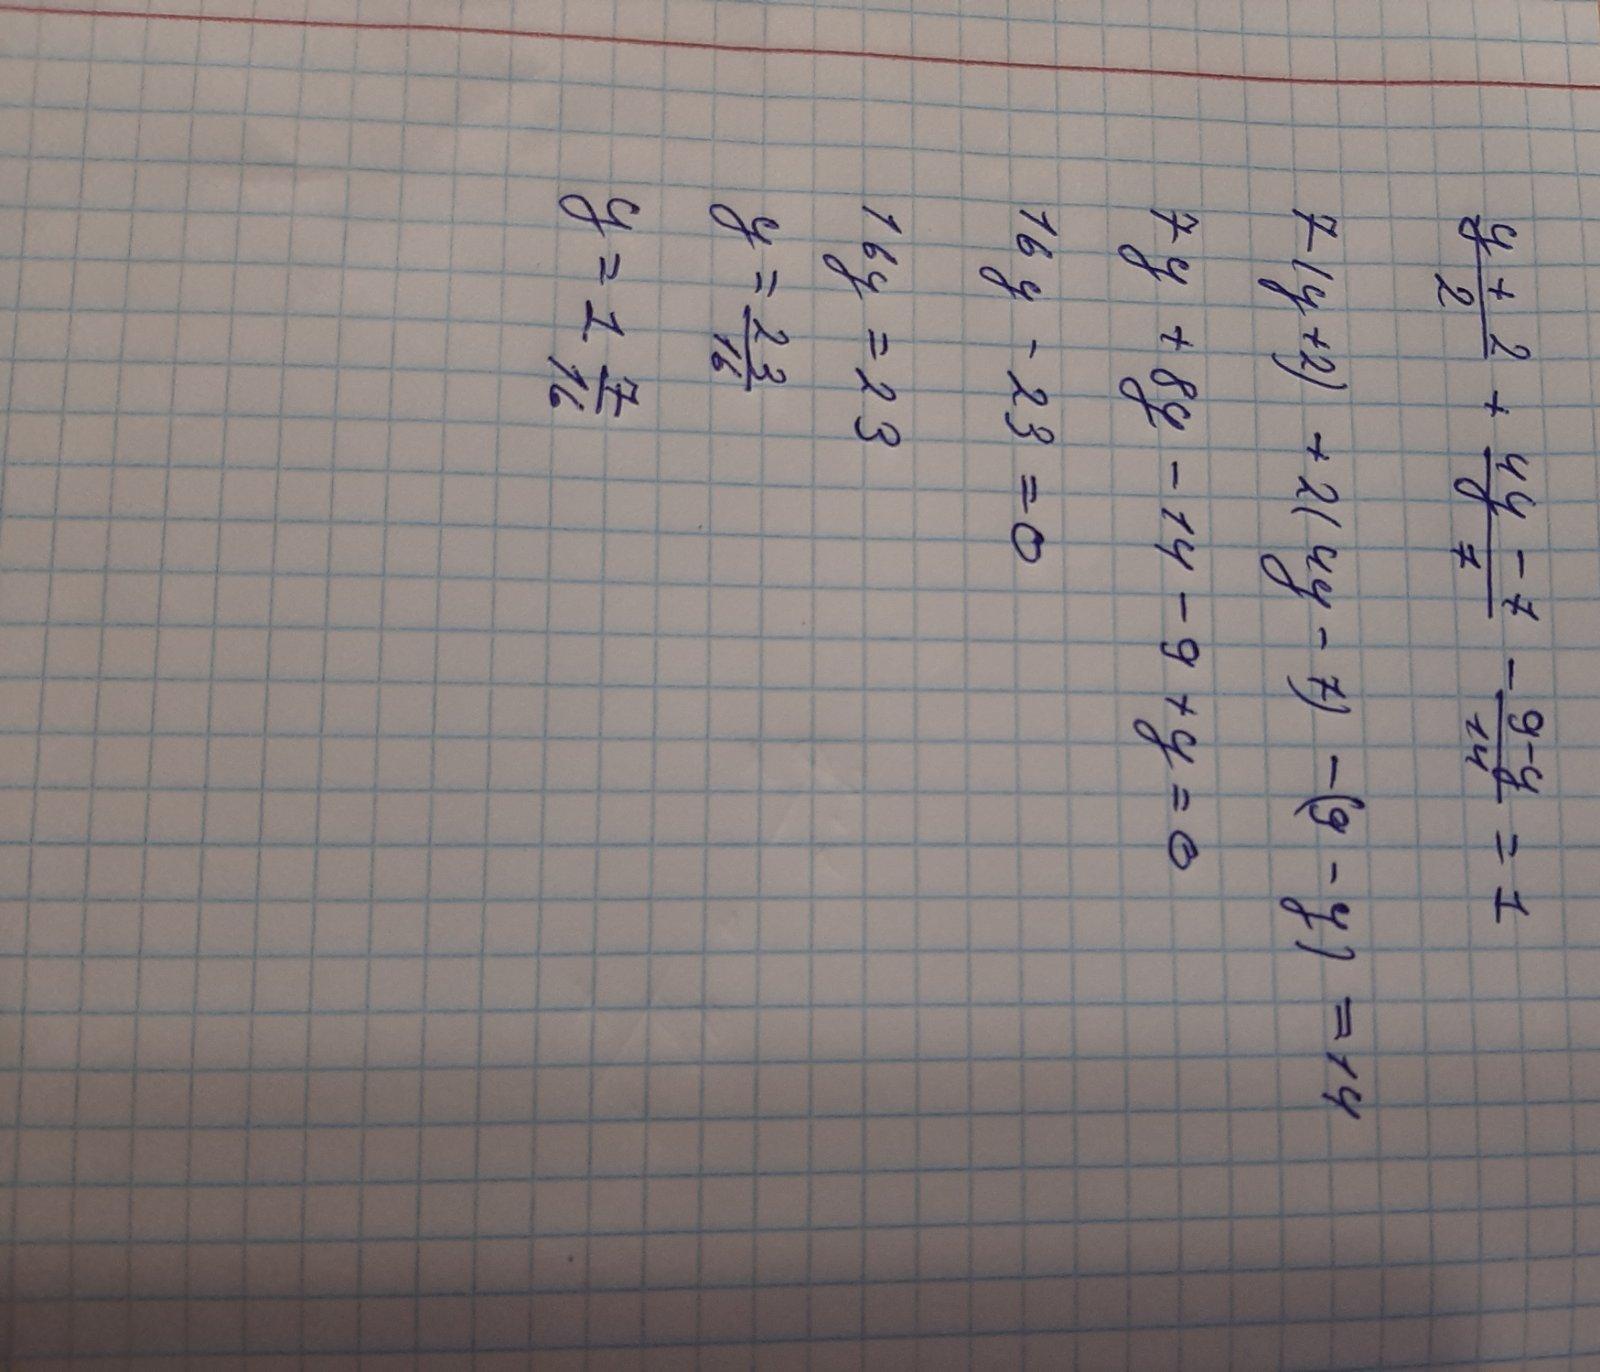 (y+2)/2 + (4y-7)/7 - (9-y)/14 = 1
7(y+2) + 2(4y-7) - (9-y) = 14
7y + 8y - 14 - 9 + y = 0
16y - 23 = 0
16y = 23
y = 23/16
y = 1 7/16